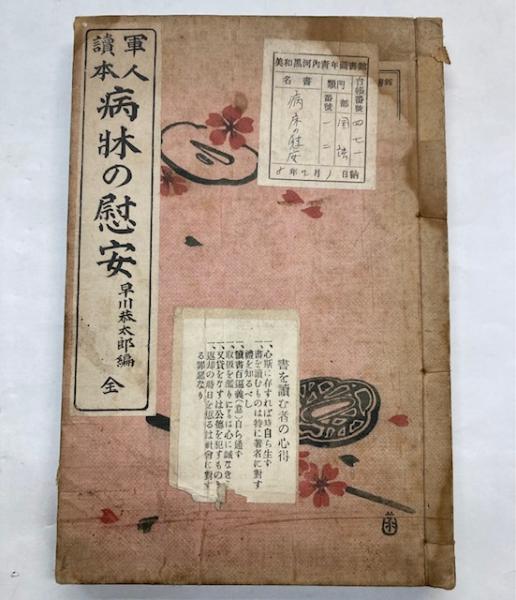 軍人
讀本
病牀の慰安
早川恭太郎編
全
美和黒河内青年圖書館
台帳番號
四七一
門類
部
番號
一二
書名
病床の慰安
年 月 日納
書を讀む者の心得
一、心斯に存すれば時自ら生ず
一、書を讀むものは特に著者に對す
禮を知るべし
一、讀書百遍義(意)自ら通ず
一、取扱を濫りにするは心に誠なき
一、又貸をなすは公德を犯すもの
一、返却の時日を怠るは社會に對す
る罪惡なり